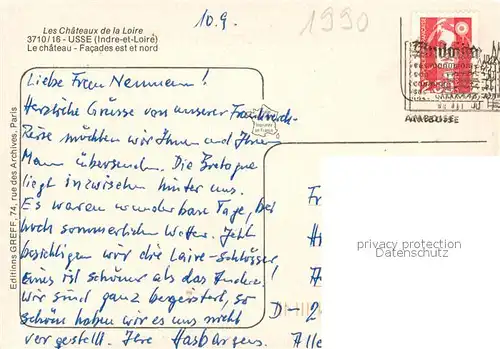 Les Châteaux de la Loire
3710/16 - USSE (Indre-et-Loire)
Le château - Façades est et nord
10.9.
1990
Liebe Frau Neumann!
Herzliche Grüsse von unserer Frankreich-
Reise möchten wir Ihnen und Ihrem
Mann übersenden. Die Bretagne
liegt inzwischen hinter uns.
Es waren wunderbare Tage, bei
hoch sommerlichen Wetter. Jetzt
besichtigen wir die Loire-Schlösser
Eines ist schöner als das Andere.
wir sind ganz begeistert, so
schön haben wir es uns nicht
vorgestellt. Ihre
Editions GREFF, 74, rue des Archives, Paris
AMBOISE
Fr
H
D-2
Alle
privacy protection
Datenschutz